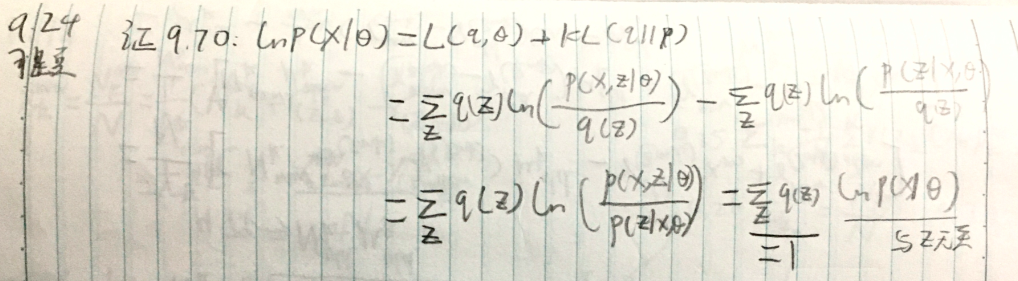 9.24 证 9.70: ln p(X|θ) = L(q,θ) + KL(q||p)
= Σ_Z q(Z) ln( p(X,Z|θ) / q(Z) ) - Σ_Z q(Z) ln( p(Z|X,θ) / q(Z) )
= Σ_Z q(Z) ln( p(X,Z|θ) / p(Z|X,θ) ) = Σ_Z q(Z) ln p(X|θ)
=1 与Z无关